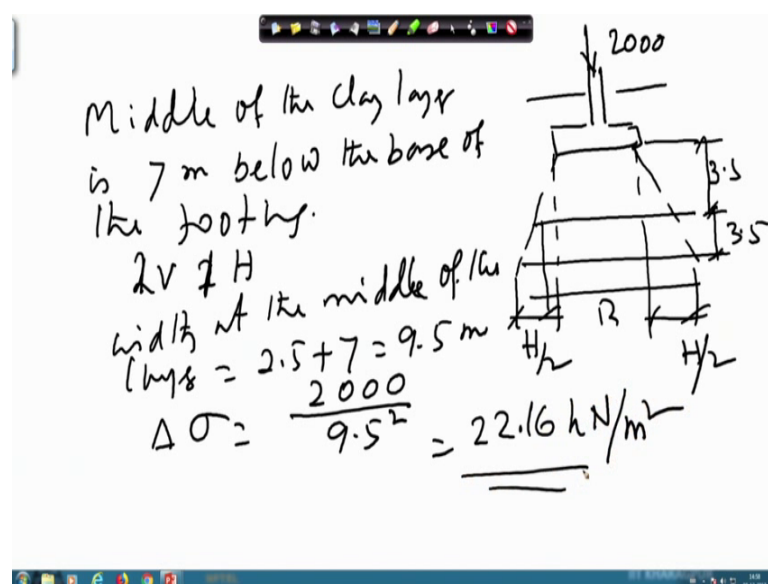 Middle of the Clay layer
is 7 m below the base of
the footing.
2V 1H
width at the middle of the
layer = 2.5+7 = 9.5 m
Δσ = 2000 / 9.5² = 22.16 kN/m²
2000
3.5
3.5
H/2
B
H/2